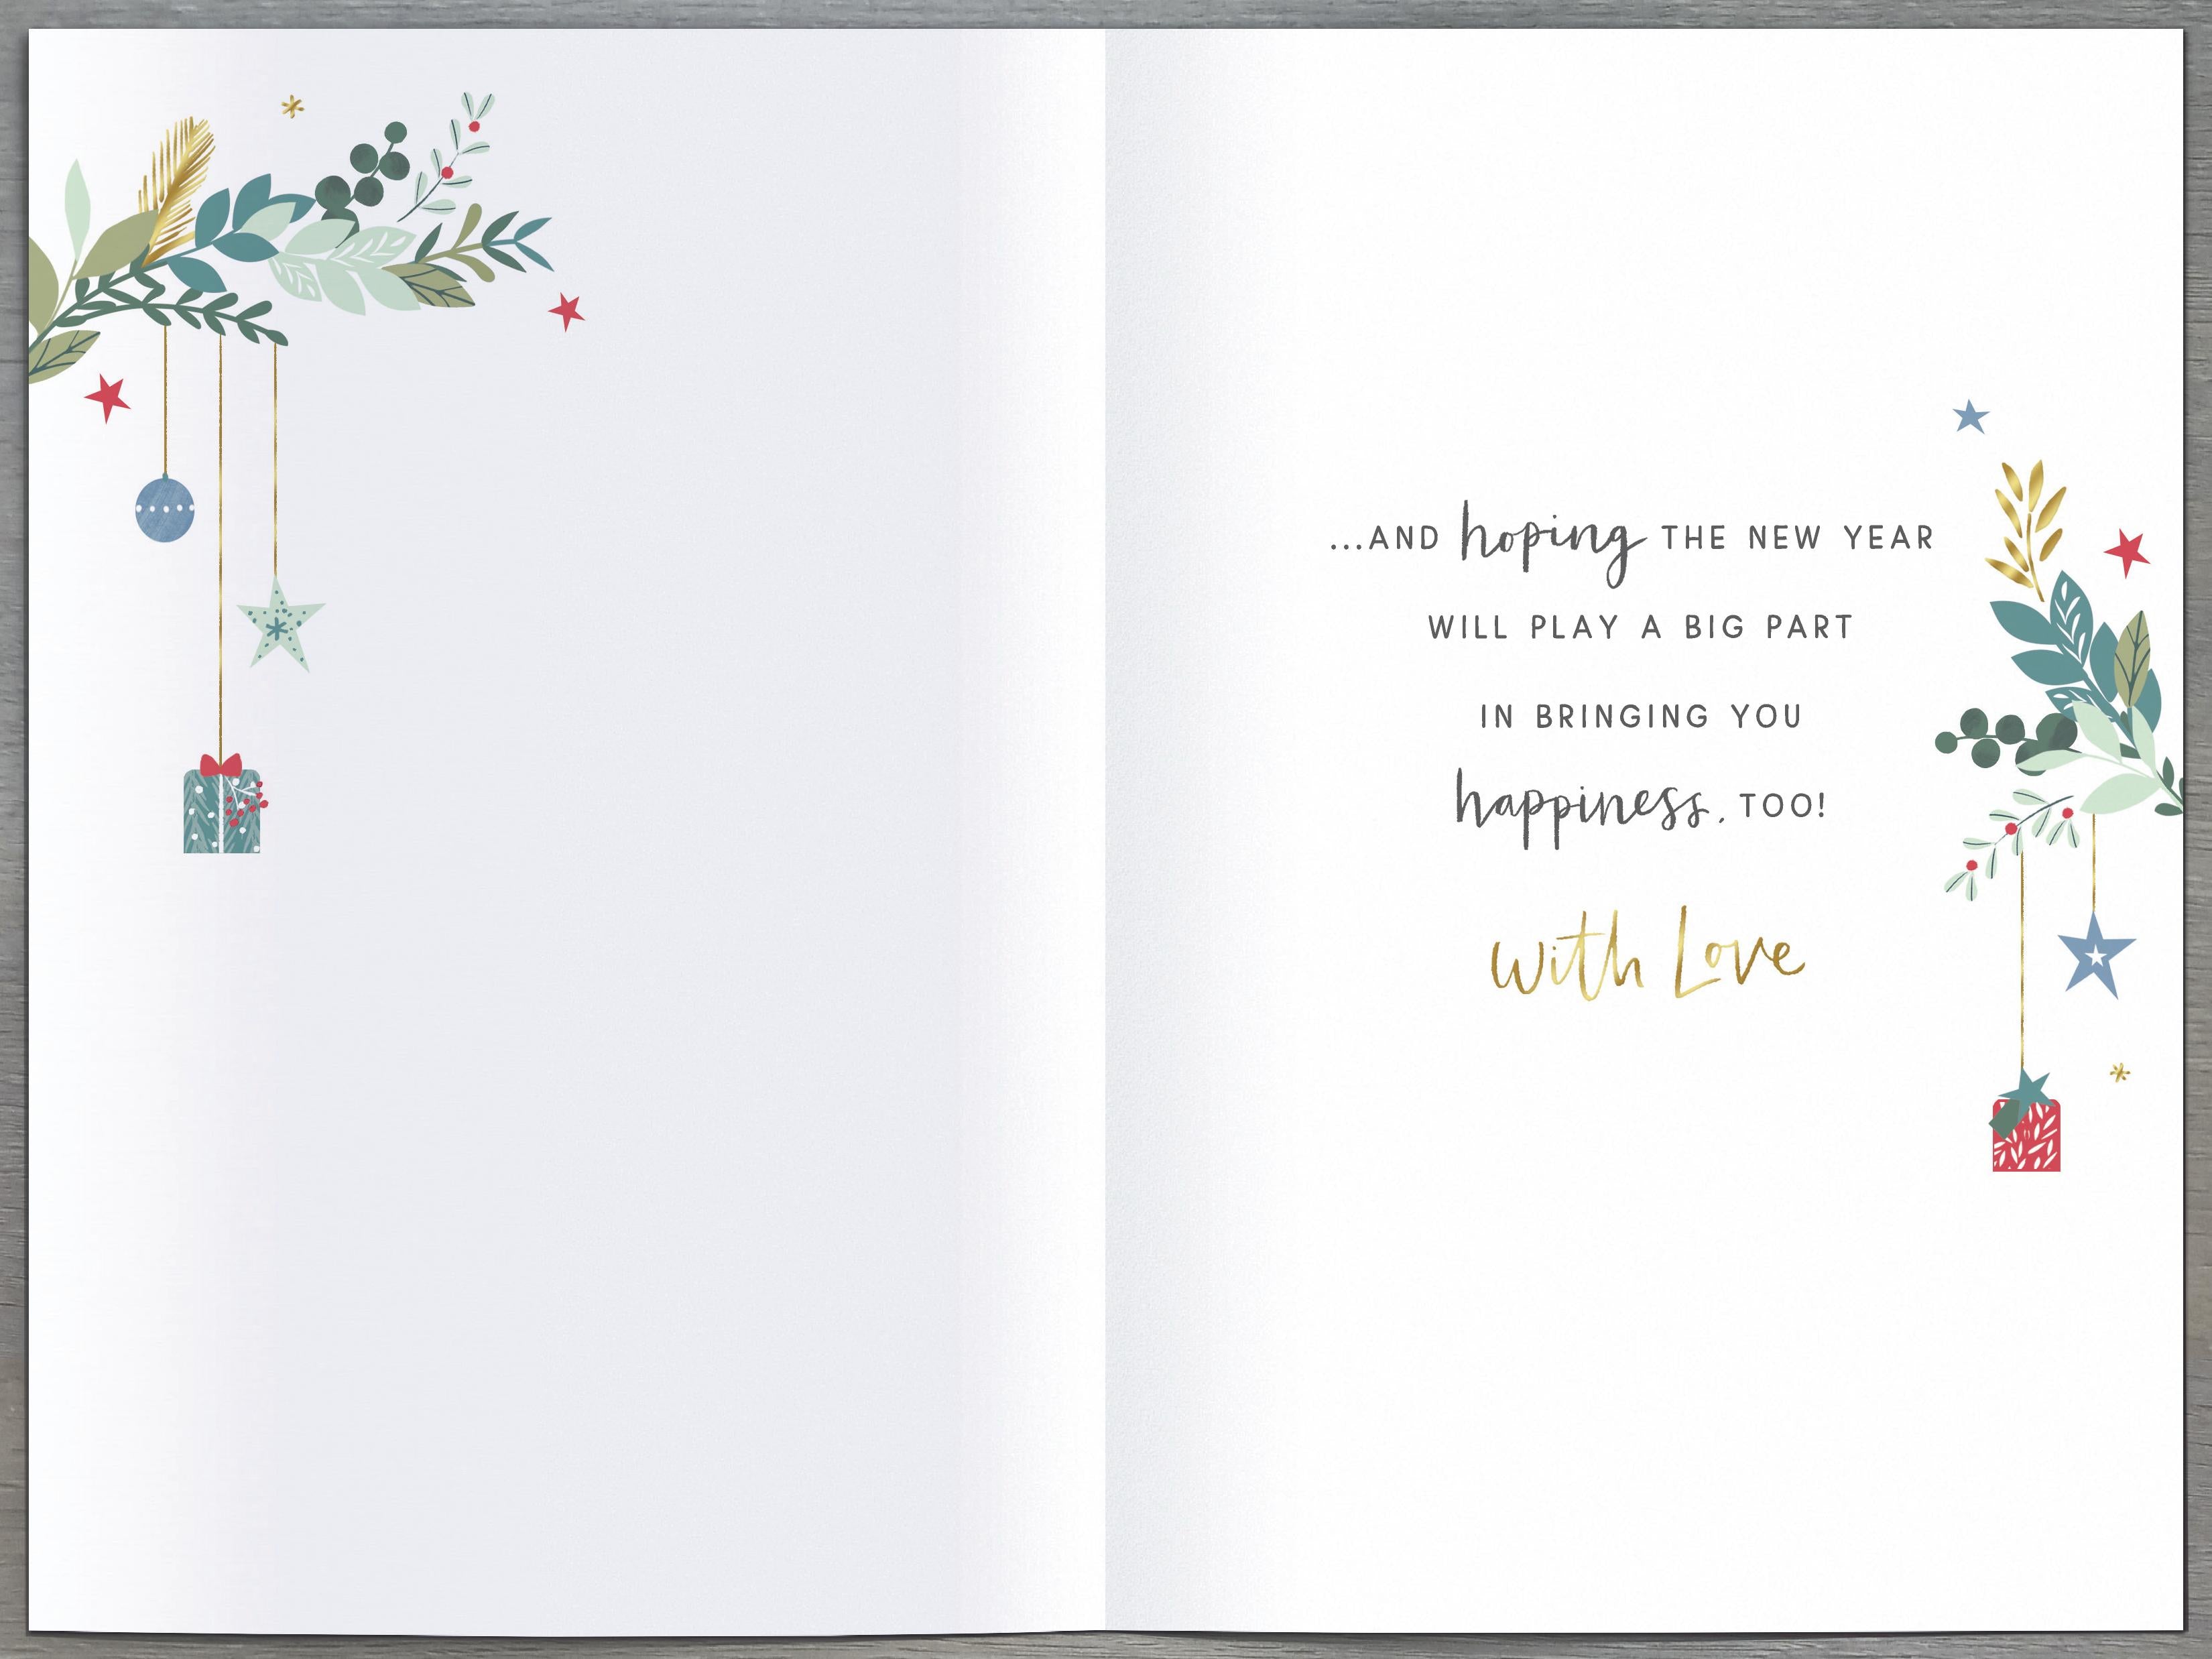 ...AND hoping THE NEW YEAR
WILL PLAY A BIG PART
IN BRINGING YOU
happiness, TOO!
With Love